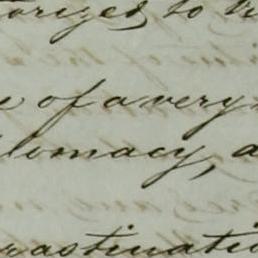 orized to
of a very
lomacy, a
rastinati